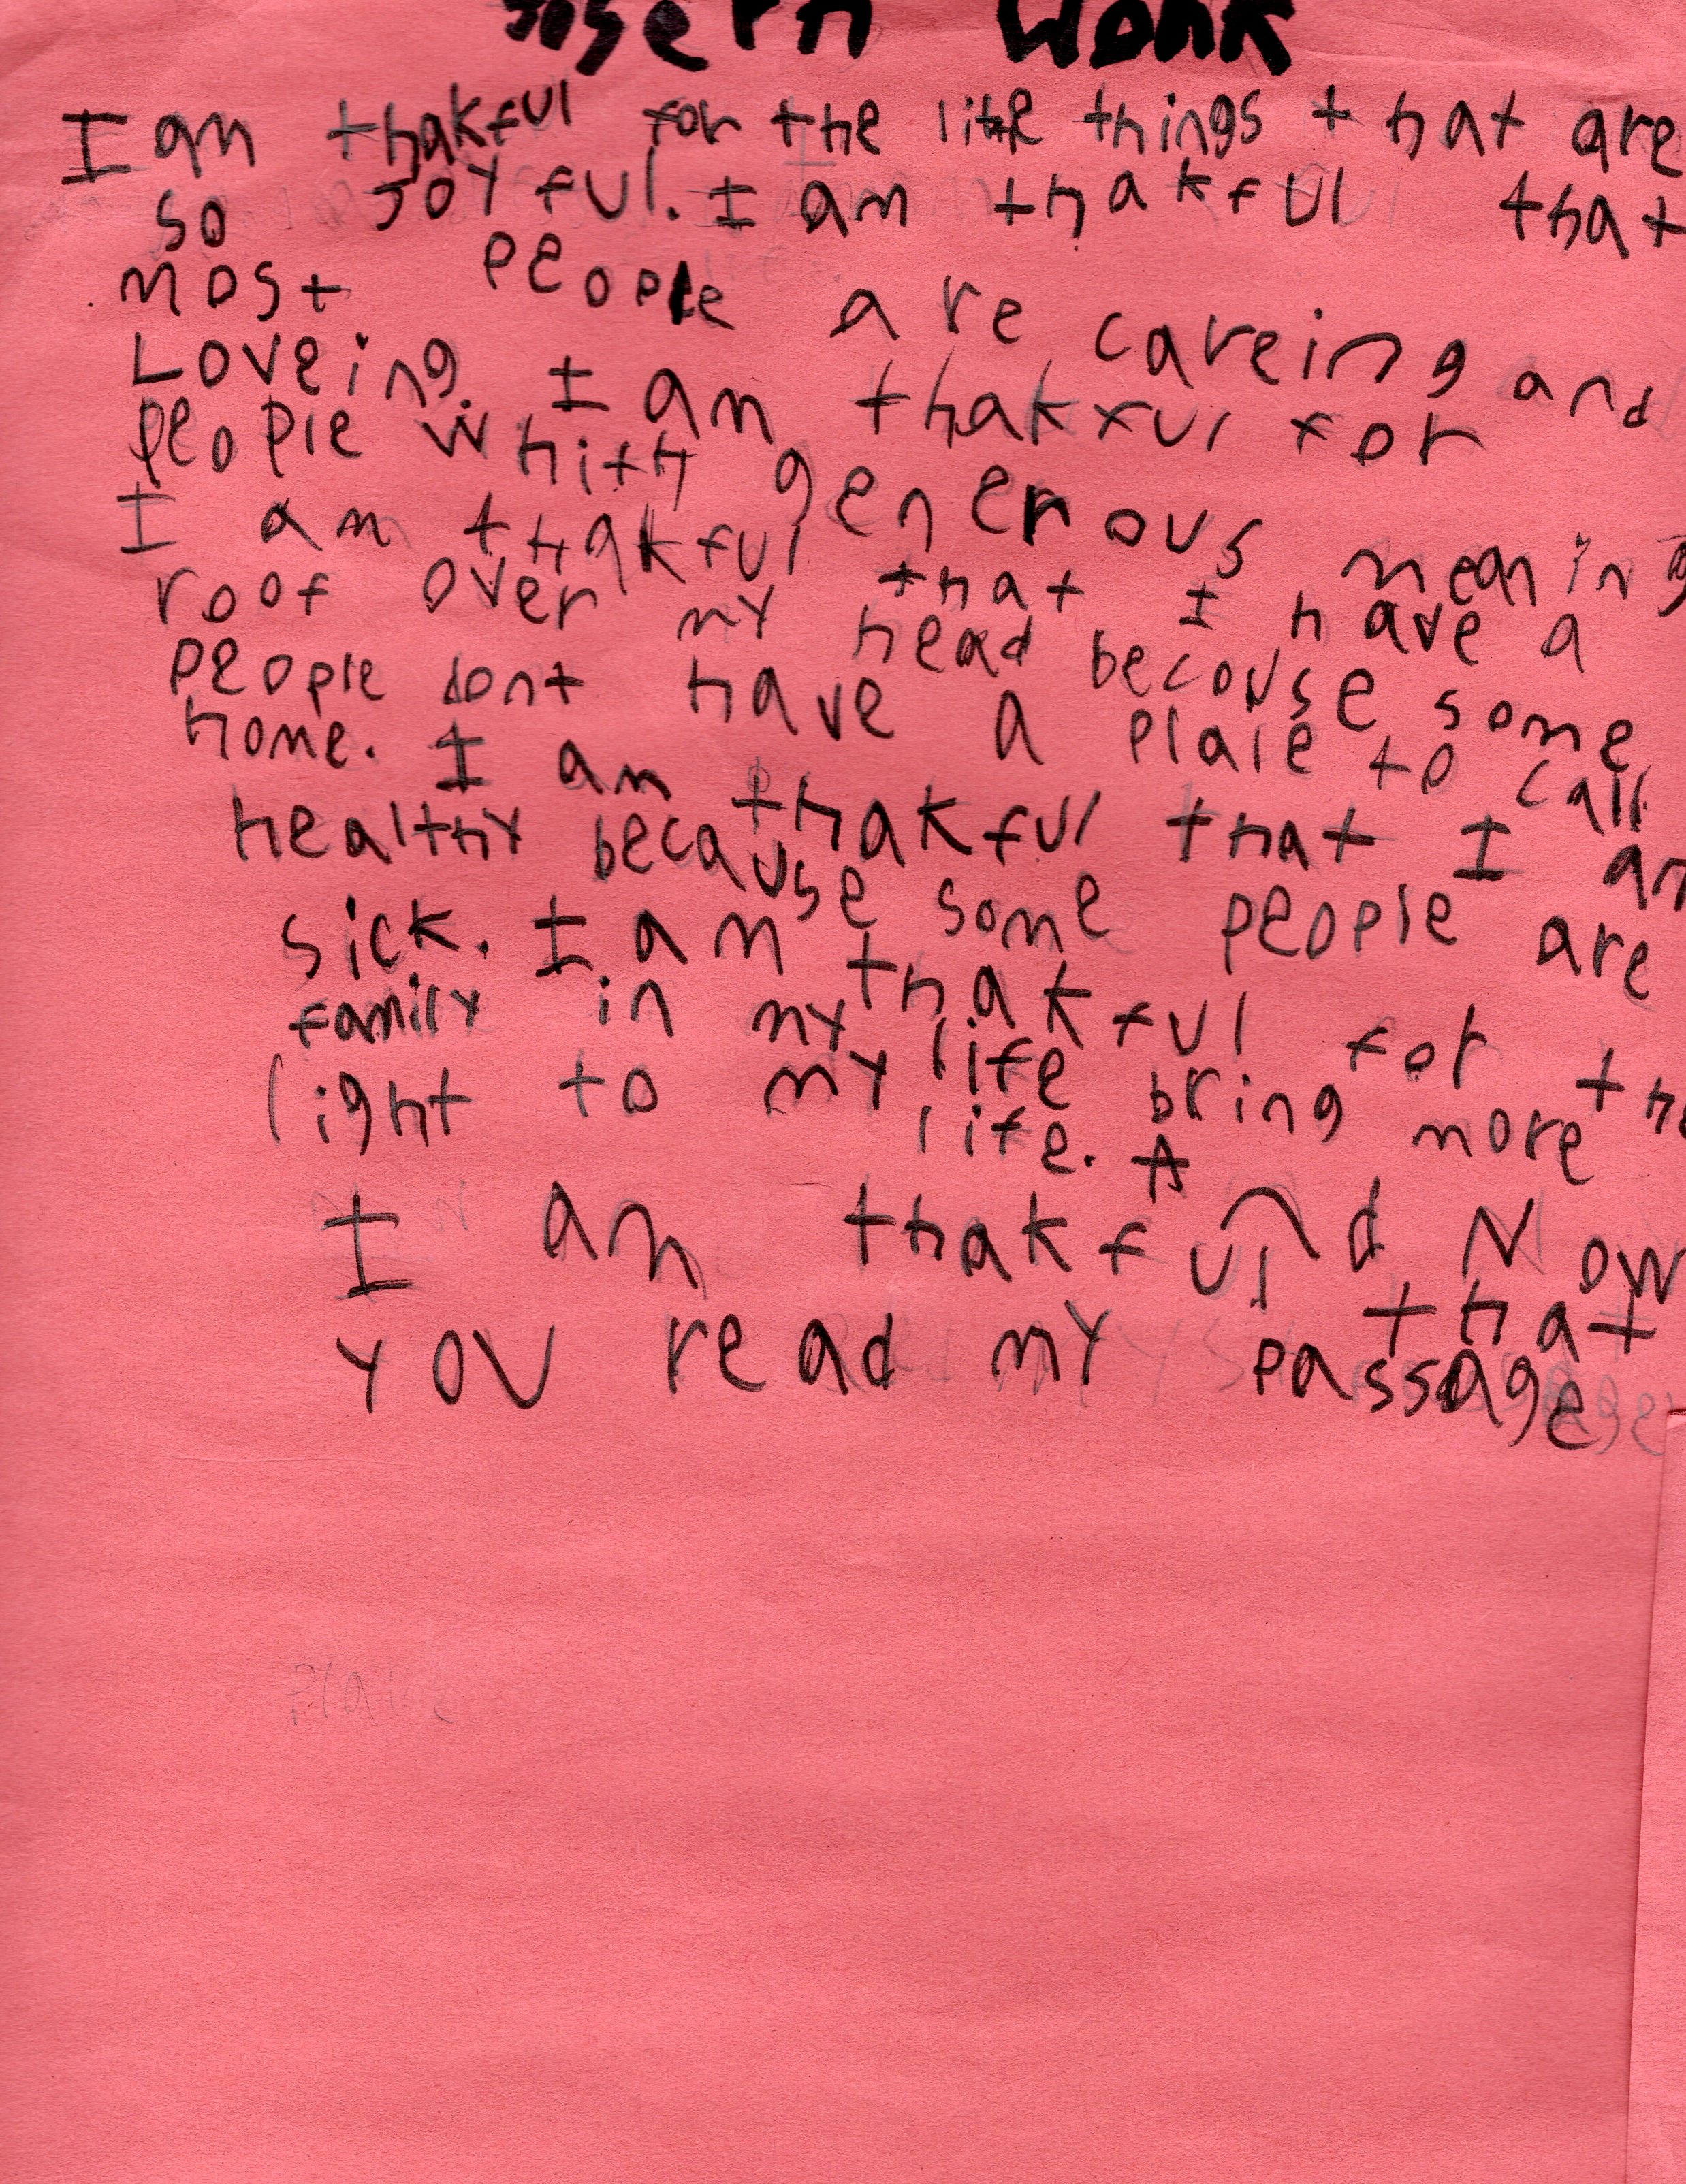 Joseph Wonk
I am thakful for the litle things that are
so Joyful. I am thakful that
most people are careing and
Loveing. I am thakful for
people whith generous meaning
I am thakful that I have a
roof over my head becouse some
people dont have a plaie to call
home. I am thakful that I am
healthy because some people are
sick. I am thakful for the
family in my life bring more
light to my life. And Now
I am thakful that
you read my passage